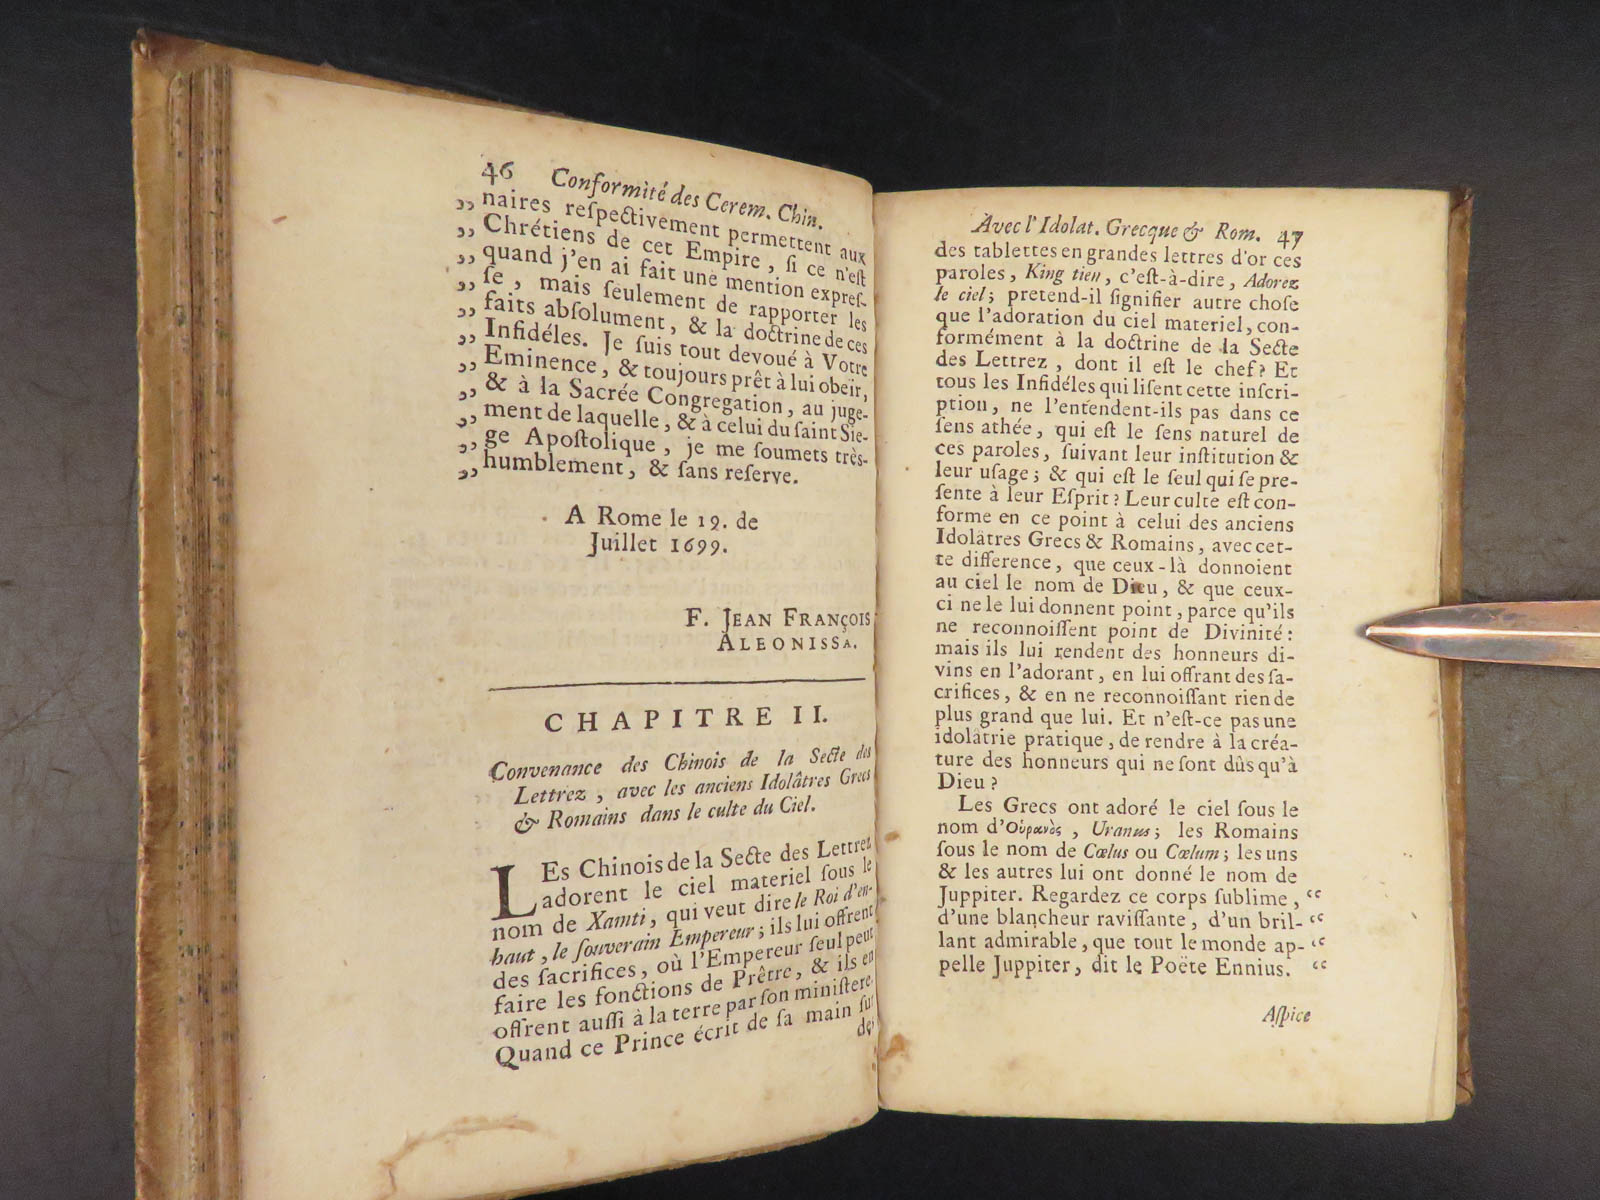 46 Conformité des Cerem. Chin.
„ naires reſpectivement permettent aux
„ Chrétiens de cet Empire, ſi ce n'eſt
„ quand j'en ai fait une mention expreſ-
„ ſe, mais ſeulement de rapporter les
„ faits abſolument, & la doctrine de ces
„ Infidéles. Je ſuis tout devoué à Votre
„ Eminence, & toujours prêt à lui obeir,
„ & à la Sacrée Congregation, au juge-
„ ment de laquelle, & à celui du ſaint Sie-
„ ge Apoſtolique, je me ſoumets très-
„ humblement, & ſans reſerve.
A Rome le 19. de
Juillet 1699.
F. JEAN FRANÇOIS
ALEONISSA.
CHAPITRE II.
Convenance des Chinois de la Secte des
Lettrez, avec les anciens Idolâtres Grecs
& Romains dans le culte du Ciel.
LEs Chinois de la Secte des Lettrez
adorent le ciel materiel ſous le
nom de Xamti, qui veut dire le Roi d'en-
haut, le ſouverain Empereur; ils lui offrent
des ſacrifices, où l'Empereur ſeul peut
faire les fonctions de Prêtre, & ils en
offrent auſſi à la terre par ſon miniſtere.
Quand ce Prince écrit de ſa main ſur
des
Avec l'Idolat. Grecque & Rom. 47
des tablettes en grandes lettres d'or ces
paroles, King tien, c'eſt-à-dire, Adorez
le ciel; pretend-il ſignifier autre choſe
que l'adoration du ciel materiel, con-
formément à la doctrine de la Secte
des Lettrez, dont il eſt le chef? Et
tous les Infidéles qui liſent cette inſcri-
ption, ne l'entendent-ils pas dans ce
ſens athée, qui eſt le ſens naturel de
ces paroles, ſuivant leur inſtitution &
leur uſage; & qui eſt le ſeul qui ſe pre-
ſente à leur Eſprit? Leur culte eſt con-
forme en ce point à celui des anciens
Idolâtres Grecs & Romains, avec cet-
te difference, que ceux-là donnoient
au ciel le nom de Dieu, & que ceux-
ci ne le lui donnent point, parce qu'ils
ne reconnoiſſent point de Divinité:
mais ils lui rendent des honneurs di-
vins en l'adorant, en lui offrant des ſa-
crifices, & en ne reconnoiſſant rien de
plus grand que lui. Et n'eſt-ce pas une
idolâtrie pratique, de rendre à la créa-
ture des honneurs qui ne ſont dûs qu'à
Dieu?
Les Grecs ont adoré le ciel ſous le
nom d'Οὐρανὸς, Uranus; les Romains
ſous le nom de Cœlus ou Cœlum; les uns
& les autres lui ont donné le nom de
Juppiter. Regardez ce corps ſublime, “
d'une blancheur raviſſante, d'un bril- “
lant admirable, que tout le monde ap- “
pelle Juppiter, dit le Poëte Ennius. “
Aſpice